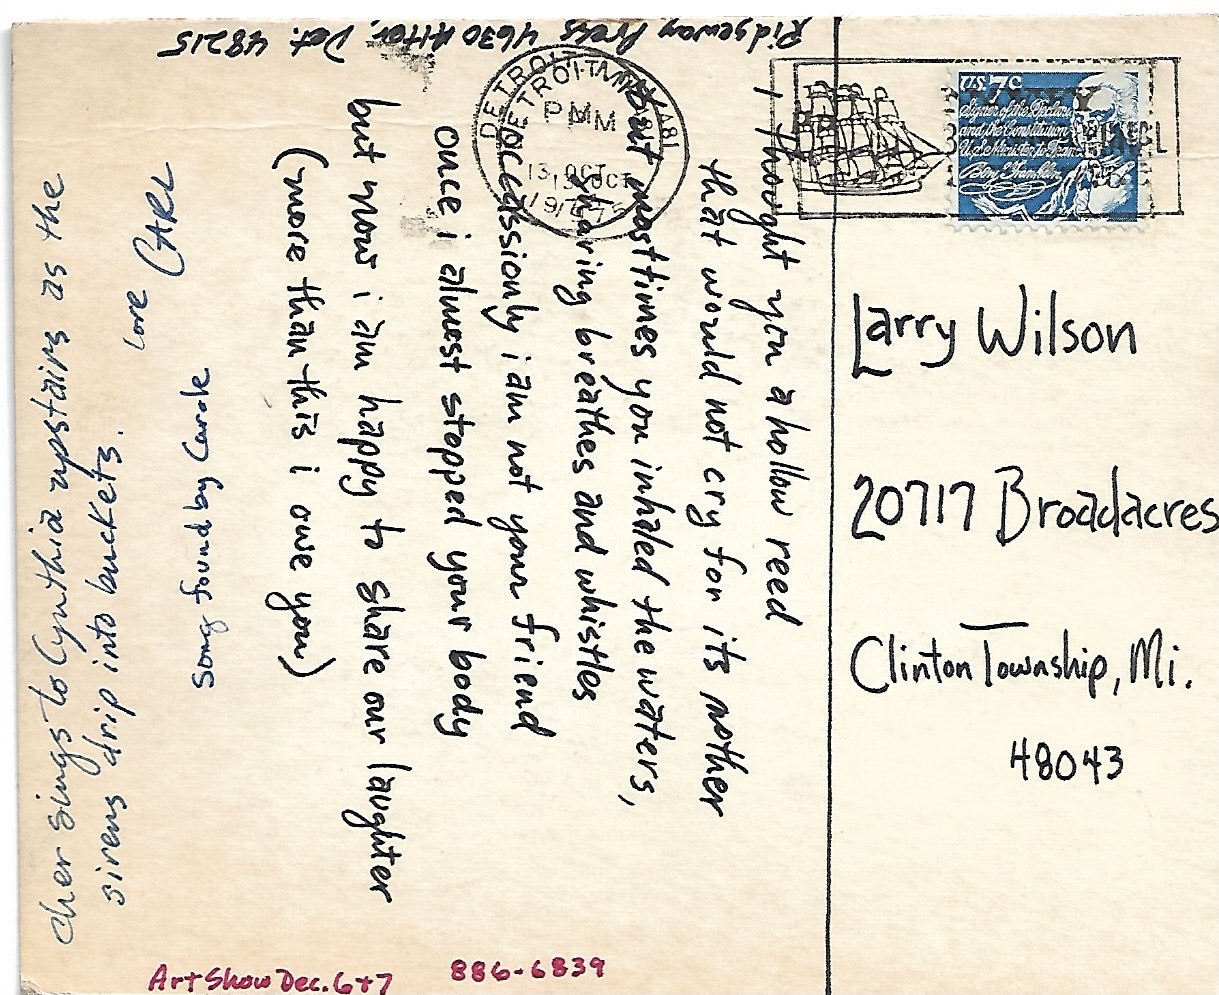 Ridgeway Press 4630 Ritter, Det. 48215
i thought you a hollow reed
that would not cry for its nother
but mosttimes you inhaled the waters,
sharing breathes and whistles
occassionly i am not your friend
once i almost stopped your body
but now i am happy to share our laughter
(more than this i owe you)
Song found by Carole
Love CARL
Cher sings to Cynthia upstairs as the
sirens drip into buckets.
Art Show Dec. 6+7 886-6839
DETROIT
DETROIT
PM
PM
13 OCT
13 OCT
U.S. 7c
Signer of the Declar
and the Constitution
U.S. Minister to Fran
Benj Franklin
Larry Wilson
20717 Broadacres
Clinton Township, Mi.
48043